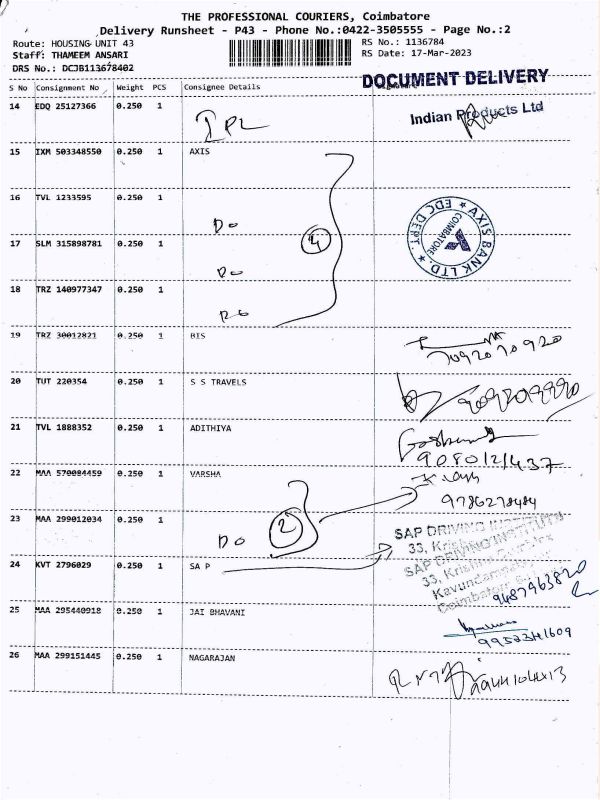 THE PROFESSIONAL COURIERS, Coimbatore
Delivery Runsheet - P43 - Phone No.:0422-3505555 - Page No.:2
Route: HOUSING UNIT 43
RS No.: 1136784
Staff: THAMEEM ANSARI
RS Date: 17-Mar-2023
DRS No.: DCJB113678402
DOCUMENT DELIVERY
S No Consignment No Weight PCS Consignee Details
14 EDQ 25127366 0.250 1
Indian Products Ltd
IPL
15 IXM 503348550 0.250 1 AXIS
16 TVL 1233595 0.250 1
AXIS BANK LTD. EDC DEPT. COIMBATORE
Do
17 SLM 315898781 0.250 1
4
Do
18 TRZ 140977347 0.250 1
Do
19 TRZ 30012821 0.250 1 BIS
7092070920
20 TUT 220354 0.250 1 S S TRAVELS
21 TVL 1888352 0.250 1 ADITHIYA
9080121437
22 MAA 570084459 0.250 1 VARSHA
9786278484
23 MAA 299012034 0.250 1
2
Do
SAP DRIVING INSTITUTE
33, Krishna
24 KVT 2796029 0.250 1 SA P
SAP DRIVING INSTITUTE
33, Krishna
Coimbatore
9487963820
25 MAA 295440918 0.250 1 JAI BHAVANI
26 MAA 299151445 0.250 1 NAGARAJAN